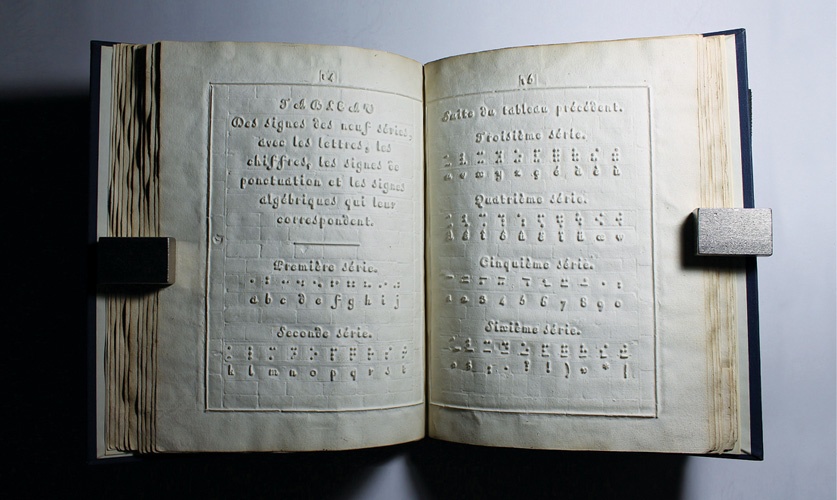 TABLEAU
Des signes des neuf séries,
avec les lettres, les
chiffres, les signes de
ponctuation et les signes
algébriques qui leur
correspondent.
Première série.
a b c d e f g h i j
Seconde série.
k l m n o p q r s t
Suite du tableau précédent.
Troisième série.
u v x y z ç é à è ù
Quatrième série.
â ê î ô û ë ï ü œ w
Cinquième série.
Sixième série.